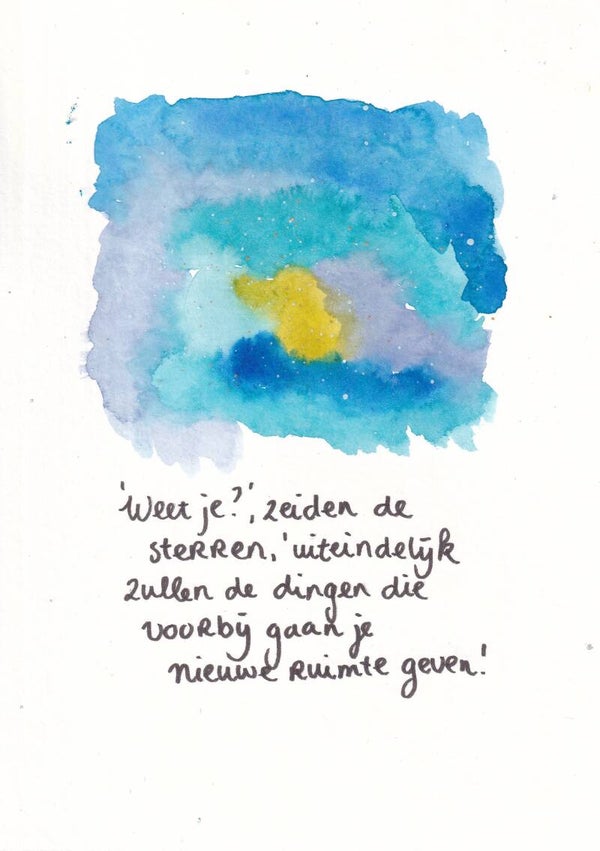 'Weet je?', zeiden de
sterren, 'uiteindelijk
zullen de dingen die
voorbij gaan je
nieuwe ruimte geven!'